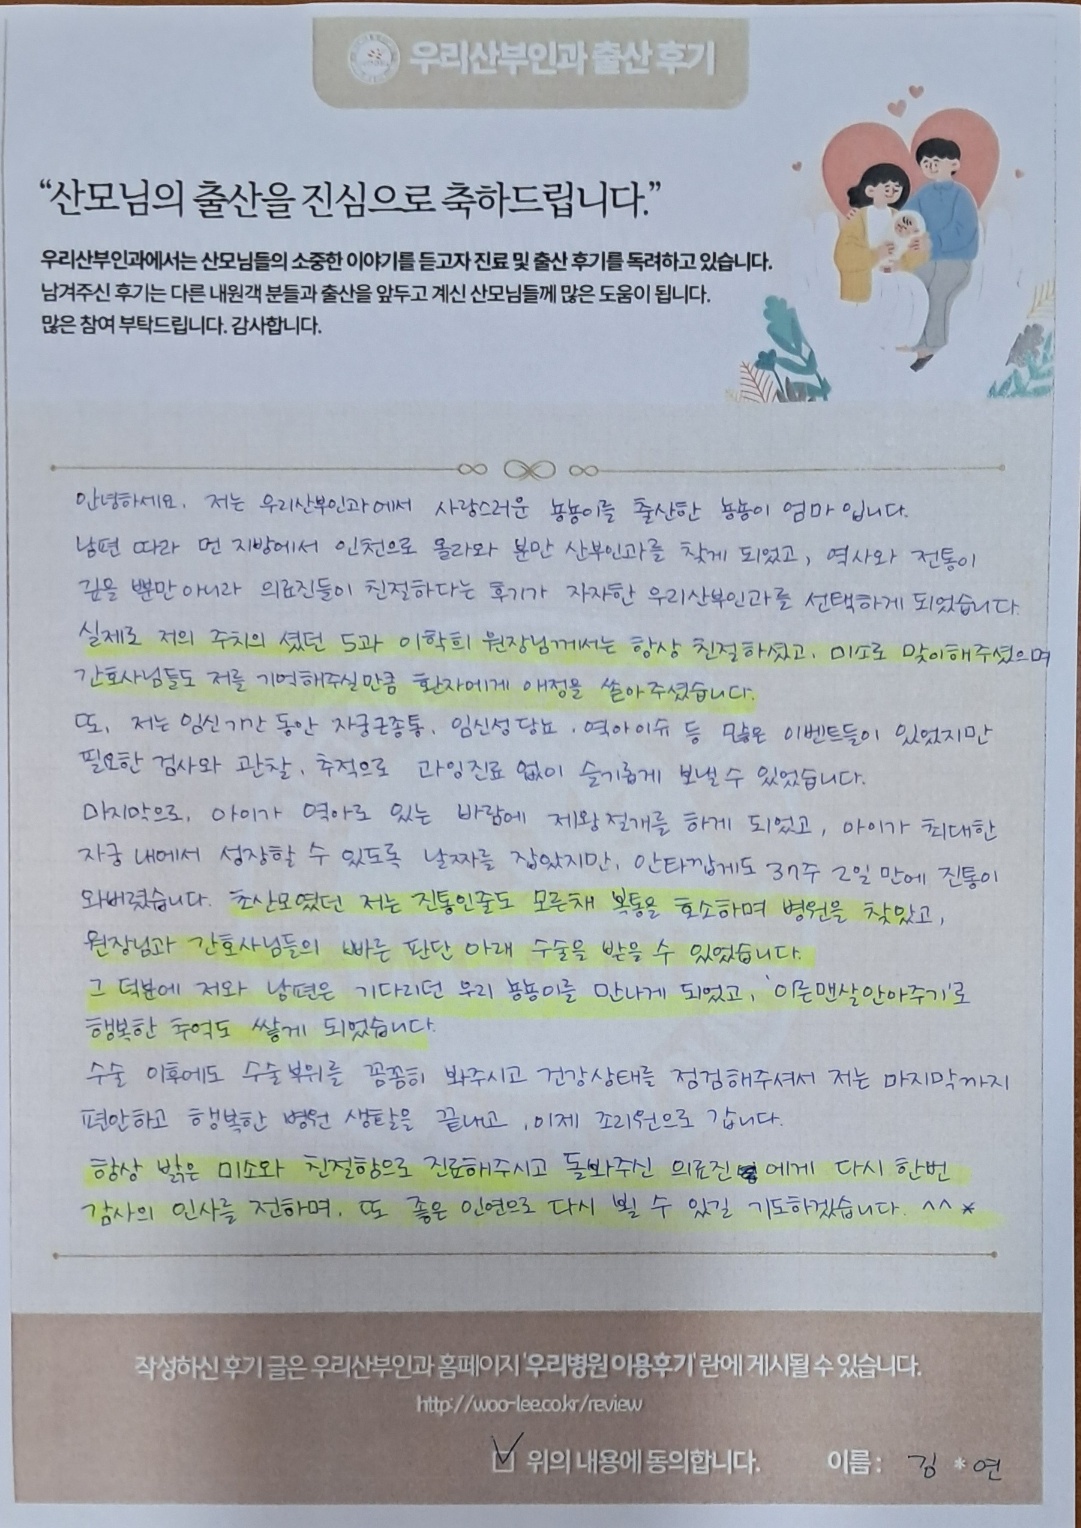 우리산부인과 출산 후기
“산모님의 출산을 진심으로 축하드립니다.”
우리산부인과에서는 산모님들의 소중한 이야기를 듣고자 진료 및 출산 후기를 독려하고 있습니다.
남겨주신 후기는 다른 내원객 분들과 출산을 앞두고 계신 산모님들께 많은 도움이 됩니다.
많은 참여 부탁드립니다. 감사합니다.
안녕하세요. 저는 우리산부인과에서 사랑스러운 뇽뇽이를 출산한 뇽뇽이 엄마 입니다.
남편 따라 먼 지방에서 인천으로 올라와 분만 산부인과를 찾게 되었고, 역사와 전통이
깊을 뿐만 아니라 의료진들이 친절하다는 후기가 자자한 우리산부인과를 선택하게 되었습니다.
실제로 저의 주치의 셨던 5과 이학희 원장님께서는 항상 친절하셨고, 미소로 맞이해주셨으며
간호사님들도 저를 기억해주실만큼 환자에게 애정을 쏟아주셨습니다.
또, 저는 임신기간 동안 자궁근종통, 임신성당뇨, 역아이슈 등 많은 이벤트들이 있었지만
필요한 검사와 관찰, 추적으로 과잉진료 없이 슬기롭게 보낼 수 있었습니다.
마지막으로, 아이가 역아로 있는 바람에 제왕절개를 하게 되었고, 아이가 최대한
자궁 내에서 성장할 수 있도록 날짜를 잡았지만, 안타깝게도 37주 2일 만에 진통이
와버렸습니다. 초산모였던 저는 진통인줄도 모른채 복통을 호소하며 병원을 찾았고,
원장님과 간호사님들의 빠른 판단 아래 수술을 받을 수 있었습니다.
그 덕분에 저와 남편은 기다리던 우리 뇽뇽이를 만나게 되었고, '이른맨살안아주기'로
행복한 추억도 쌓게 되었습니다.
수술 이후에도 수술부위를 꼼꼼히 봐주시고 건강상태를 점검해주셔서 저는 마지막까지
편안하고 행복한 병원 생활을 끝내고, 이제 조리원으로 갑니다.
항상 밝은 미소와 친절함으로 진료해주시고 돌봐주신 의료진 에게 다시 한번
감사의 인사를 전하며, 또 좋은 인연으로 다시 뵐 수 있길 기도하겠습니다. ^^*
작성하신 후기 글은 우리산부인과 홈페이지 '우리병원 이용후기' 란에 게시될 수 있습니다.
http://woo-lee.co.kr/review
위의 내용에 동의합니다. 이름 : 김 * 연